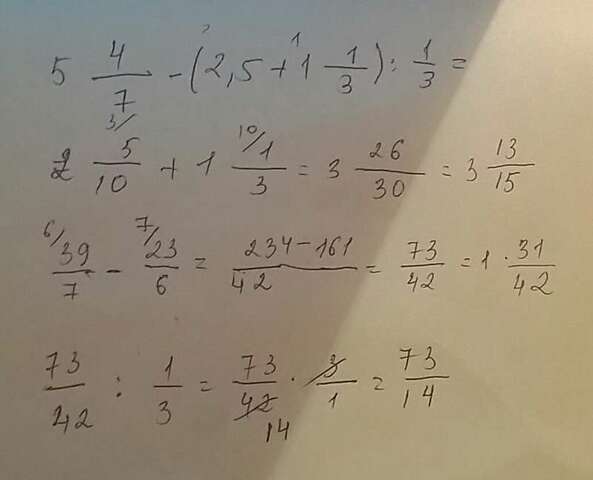 5 4/7 - (2,5 + 1 1/3) : 1/3 =
2 3/ 5/10 + 1 10/ 1/3 = 3 26/30 = 3 13/15
6/ 39/7 - 7/ 23/6 = 234-161/42 = 73/42 = 1 · 31/42
73/42 : 1/3 = 73/42 · 3/1 = 73/14
14